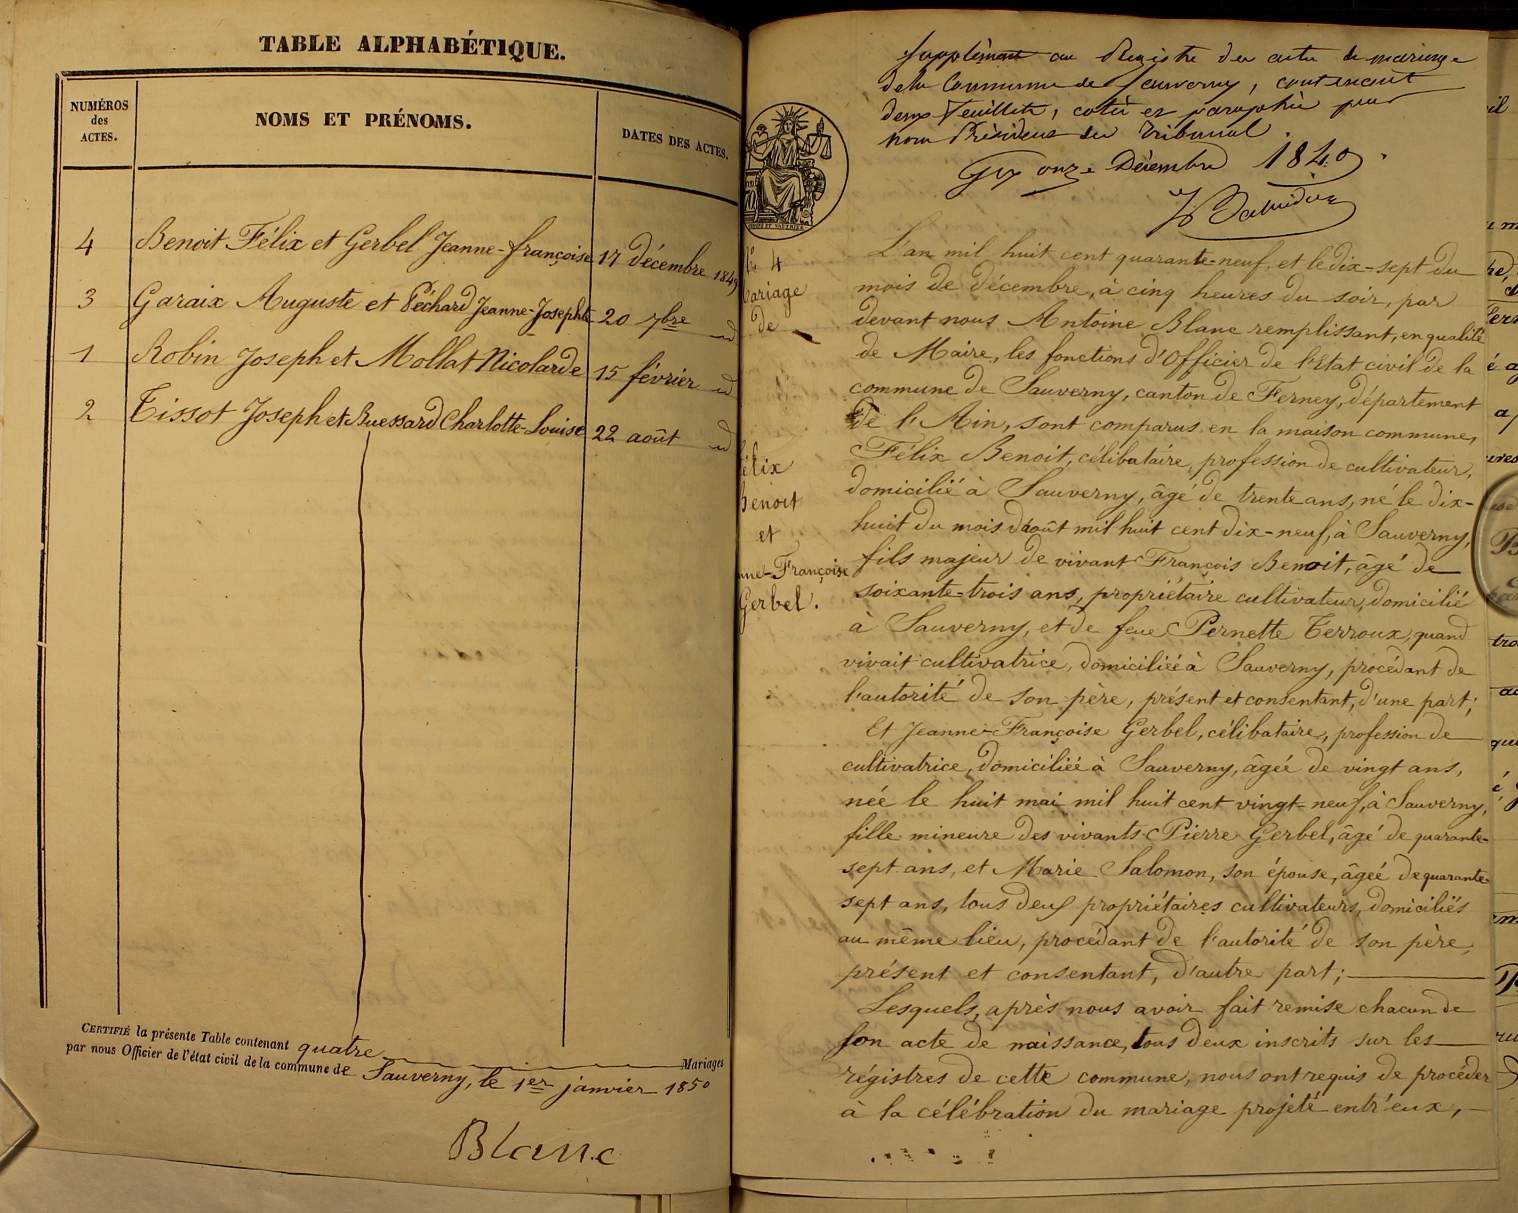 TABLE ALPHABÉTIQUE.
NUMÉROS
des
ACTES.
NOMS ET PRÉNOMS.
DATES DES ACTES.
4 Benoit Félix et Gerbel Jeanne-françoise 17 décembre 1849
3 Garaix Auguste et Péchard Jeanne-Josephte 20 7bre id
1 Robin Joseph et Mollat Nicolarde 15 février id
2 Tissot Joseph et Buessard Charlotte-Louise 22 août id
CERTIFIÉ la présente Table contenant quatre Mariages
par nous Officier de l'état civil de la commune de Sauverny, le 1er janvier 1850
Blanc
Supplément au Registre des actes de mariage
de la Commune de Sauverny, contenant
deux feuillets, cotés et paraphés par
nous Président du Tribunal.
Gex onze Décembre 1849.
4
Mariage
de
Félix
Benoit
et
Jeanne-Françoise
Gerbel.
L'an mil huit cent quarante-neuf, et le dix-sept du
mois de décembre, à cinq heures du soir, par
devant nous Antoine Blanc remplissant, en qualité
de Maire, les fonctions d'Officier de l'Etat civil de la
commune de Sauverny, canton de Ferney, département
de l'Ain, sont comparus en la maison commune,
Félix Benoit, célibataire, profession de cultivateur,
domicilié à Sauverny, âgé de trente ans, né le dix-
huit du mois d'août mil huit cent dix-neuf, à Sauverny,
fils majeur de vivant François Benoit, âgé de
soixante-trois ans, propriétaire cultivateur, domicilié
à Sauverny, et de feue Pernette Terroux, quand
vivait cultivatrice, domiciliée à Sauverny, procédant de
l'autorité de son père, présent et consentant, d'une part;
Et Jeanne-Françoise Gerbel, célibataire, profession de
cultivatrice, domiciliée à Sauverny, âgée de vingt ans,
née le huit mai mil huit cent vingt-neuf, à Sauverny,
fille mineure des vivants Pierre Gerbel, âgé de quarante-
sept ans, et Marie Salomon, son épouse, âgée de quarante-
sept ans, tous deux propriétaires cultivateurs, domiciliés
au même lieu, procédant de l'autorité de son père,
présent et consentant, d'autre part;
Lesquels, après nous avoir fait remise chacun de
son acte de naissance, tous deux inscrits sur les
régistres de cette commune, nous ont requis de procéder
à la célébration du mariage projeté entr'eux,